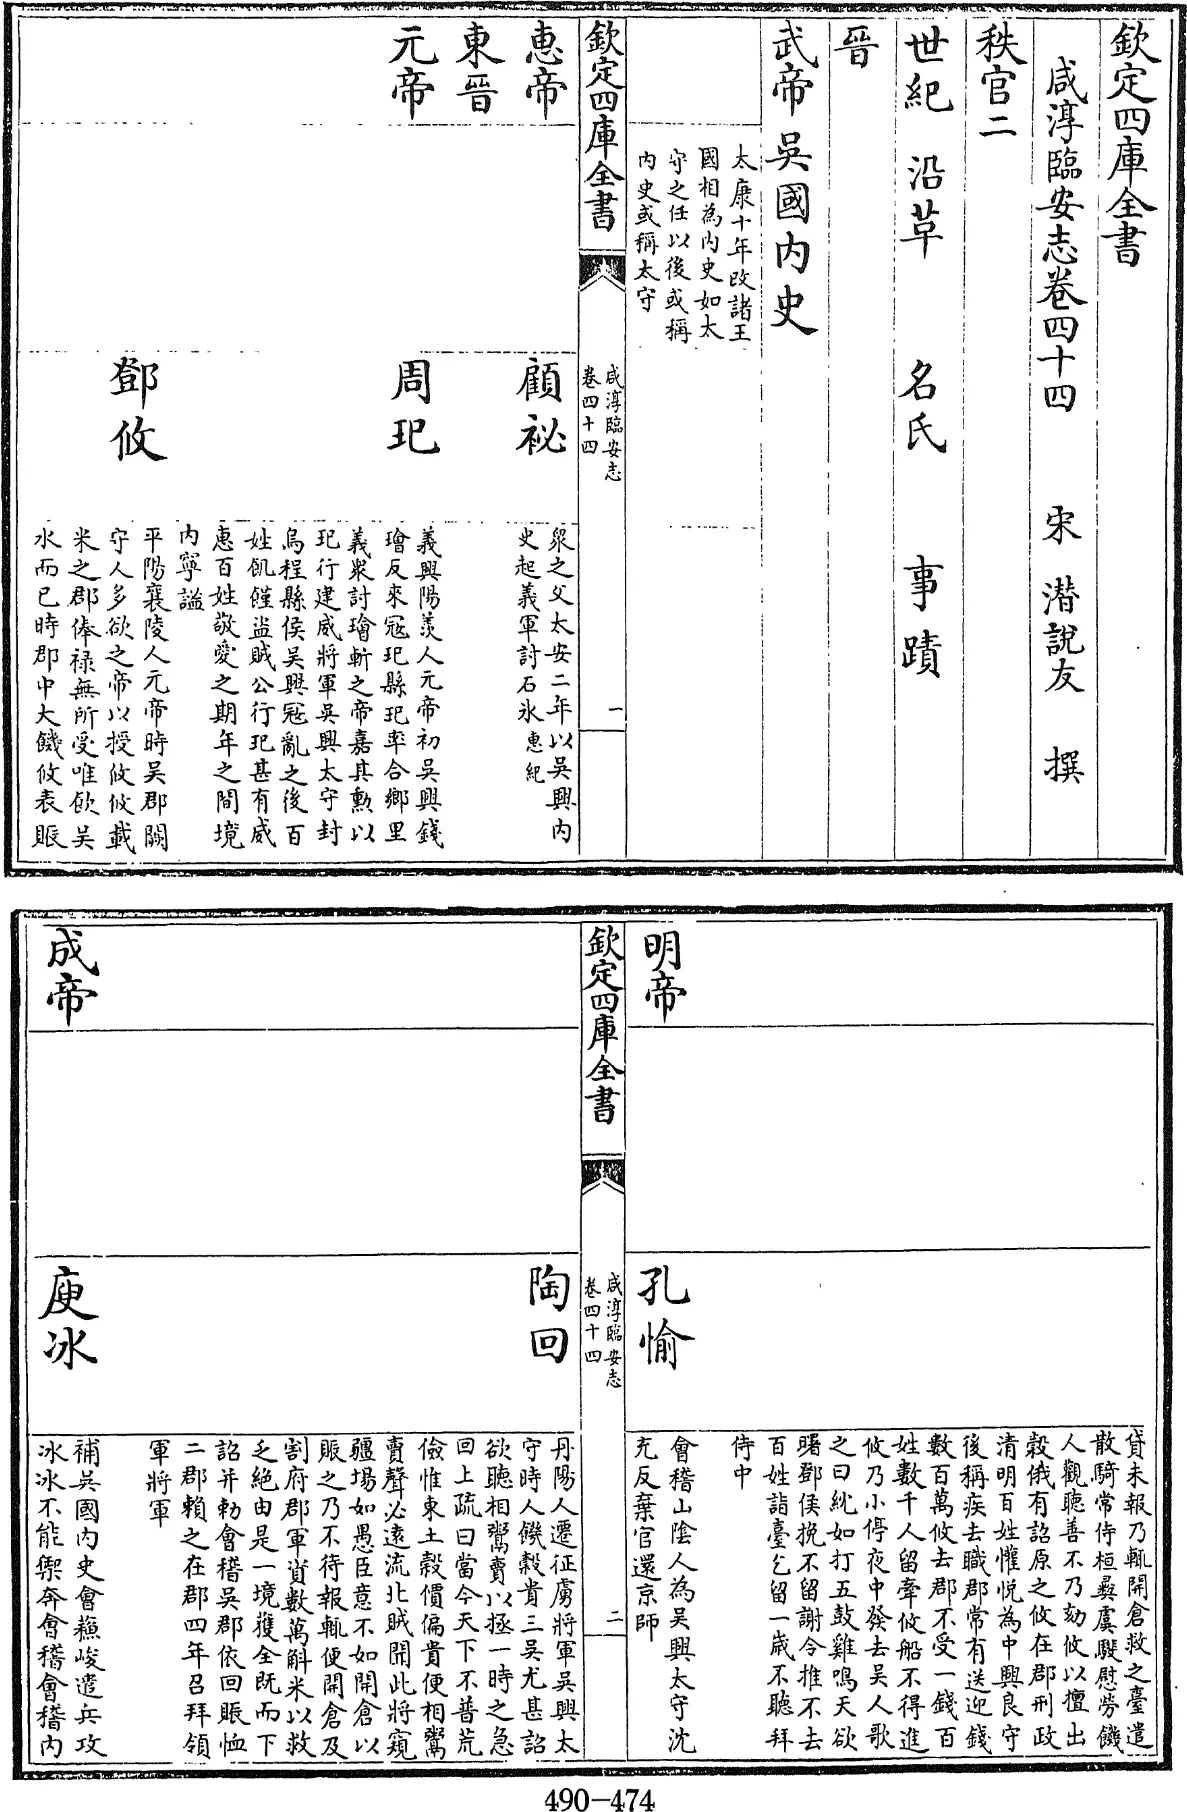 欽定四庫全書
咸淳臨安志卷四十四　宋　潛說友　撰
秩官二
世紀　沿革　名氏　事蹟
晉
武帝　吳國內史
太康十年改諸王
國相為內史如太
守之任以後或稱
內史或稱太守
欽定四庫全書
咸淳臨安志
卷四十四
一
惠帝　顧祕
眾之父太安二年以吳興內
史起義軍討石氷惠紀
東晉
元帝　周玘
義興陽羡人元帝初吳興錢
璯反來冦玘縣玘率合鄉里
義衆討璯斬之帝嘉其勲以
玘行建威將軍吳興太守封
烏程縣侯吳興冦亂之後百
姓飢饉盜賊公行玘甚有威
惠百姓敬愛之期年之間境
內寧謐
鄧攸
平陽襄陵人元帝時吳郡闕
守人多欲之帝以授攸攸載
米之郡俸祿無所受唯飲吳
水而已時郡中大饑攸表賑
貸未報乃輒開倉救之臺遣
散騎常侍桓彞虞𩦎慰勞饑
人觀聽善不乃劾攸以擅出
穀俄有詔原之攸在郡刑政
清明百姓懽悅為中興良守
後稱疾去職郡常有送迎錢
數百萬攸去郡不受一錢百
姓數千人留牽攸船不得進
攸乃小停夜中發去吳人歌
之曰紞如打五鼓雞鳴天欲
曙鄧侯挽不留謝令推不去
百姓詣臺乞留一歲不聽拜
侍中
明帝　孔愉
會稽山陰人為吳興太守沈
充反棄官還京師
欽定四庫全書
咸淳臨安志
卷四十四
二
陶回
丹陽人遷征虜將軍吳興太
守時人饑穀貴三吳尤甚詔
欲聽相鬻賣以拯一時之急
回上疏曰當今天下不普荒
儉惟東土穀價偏貴便相鬻
賣聲必遠流北賊聞此將窺
疆場如愚臣意不如開倉以
賑之乃不待報輒便開倉及
割府郡軍資數萬斛米以救
乏絕由是一境獲全既而下
詔并勅會稽吳郡依回賑恤
二郡賴之在郡四年召拜領
軍將軍
成帝　庾冰
補吳國內史會蘇峻遣兵攻
冰冰不能禦奔會稽會稽內
490-474